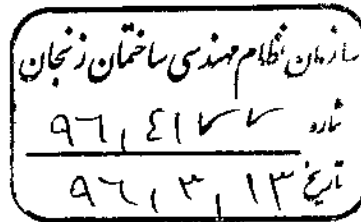 سازمان نظام مهندسی ساختمان زنجان
شماره ۹۶,۴۱۷۷
تاریخ ۹۶,۳,۱۳